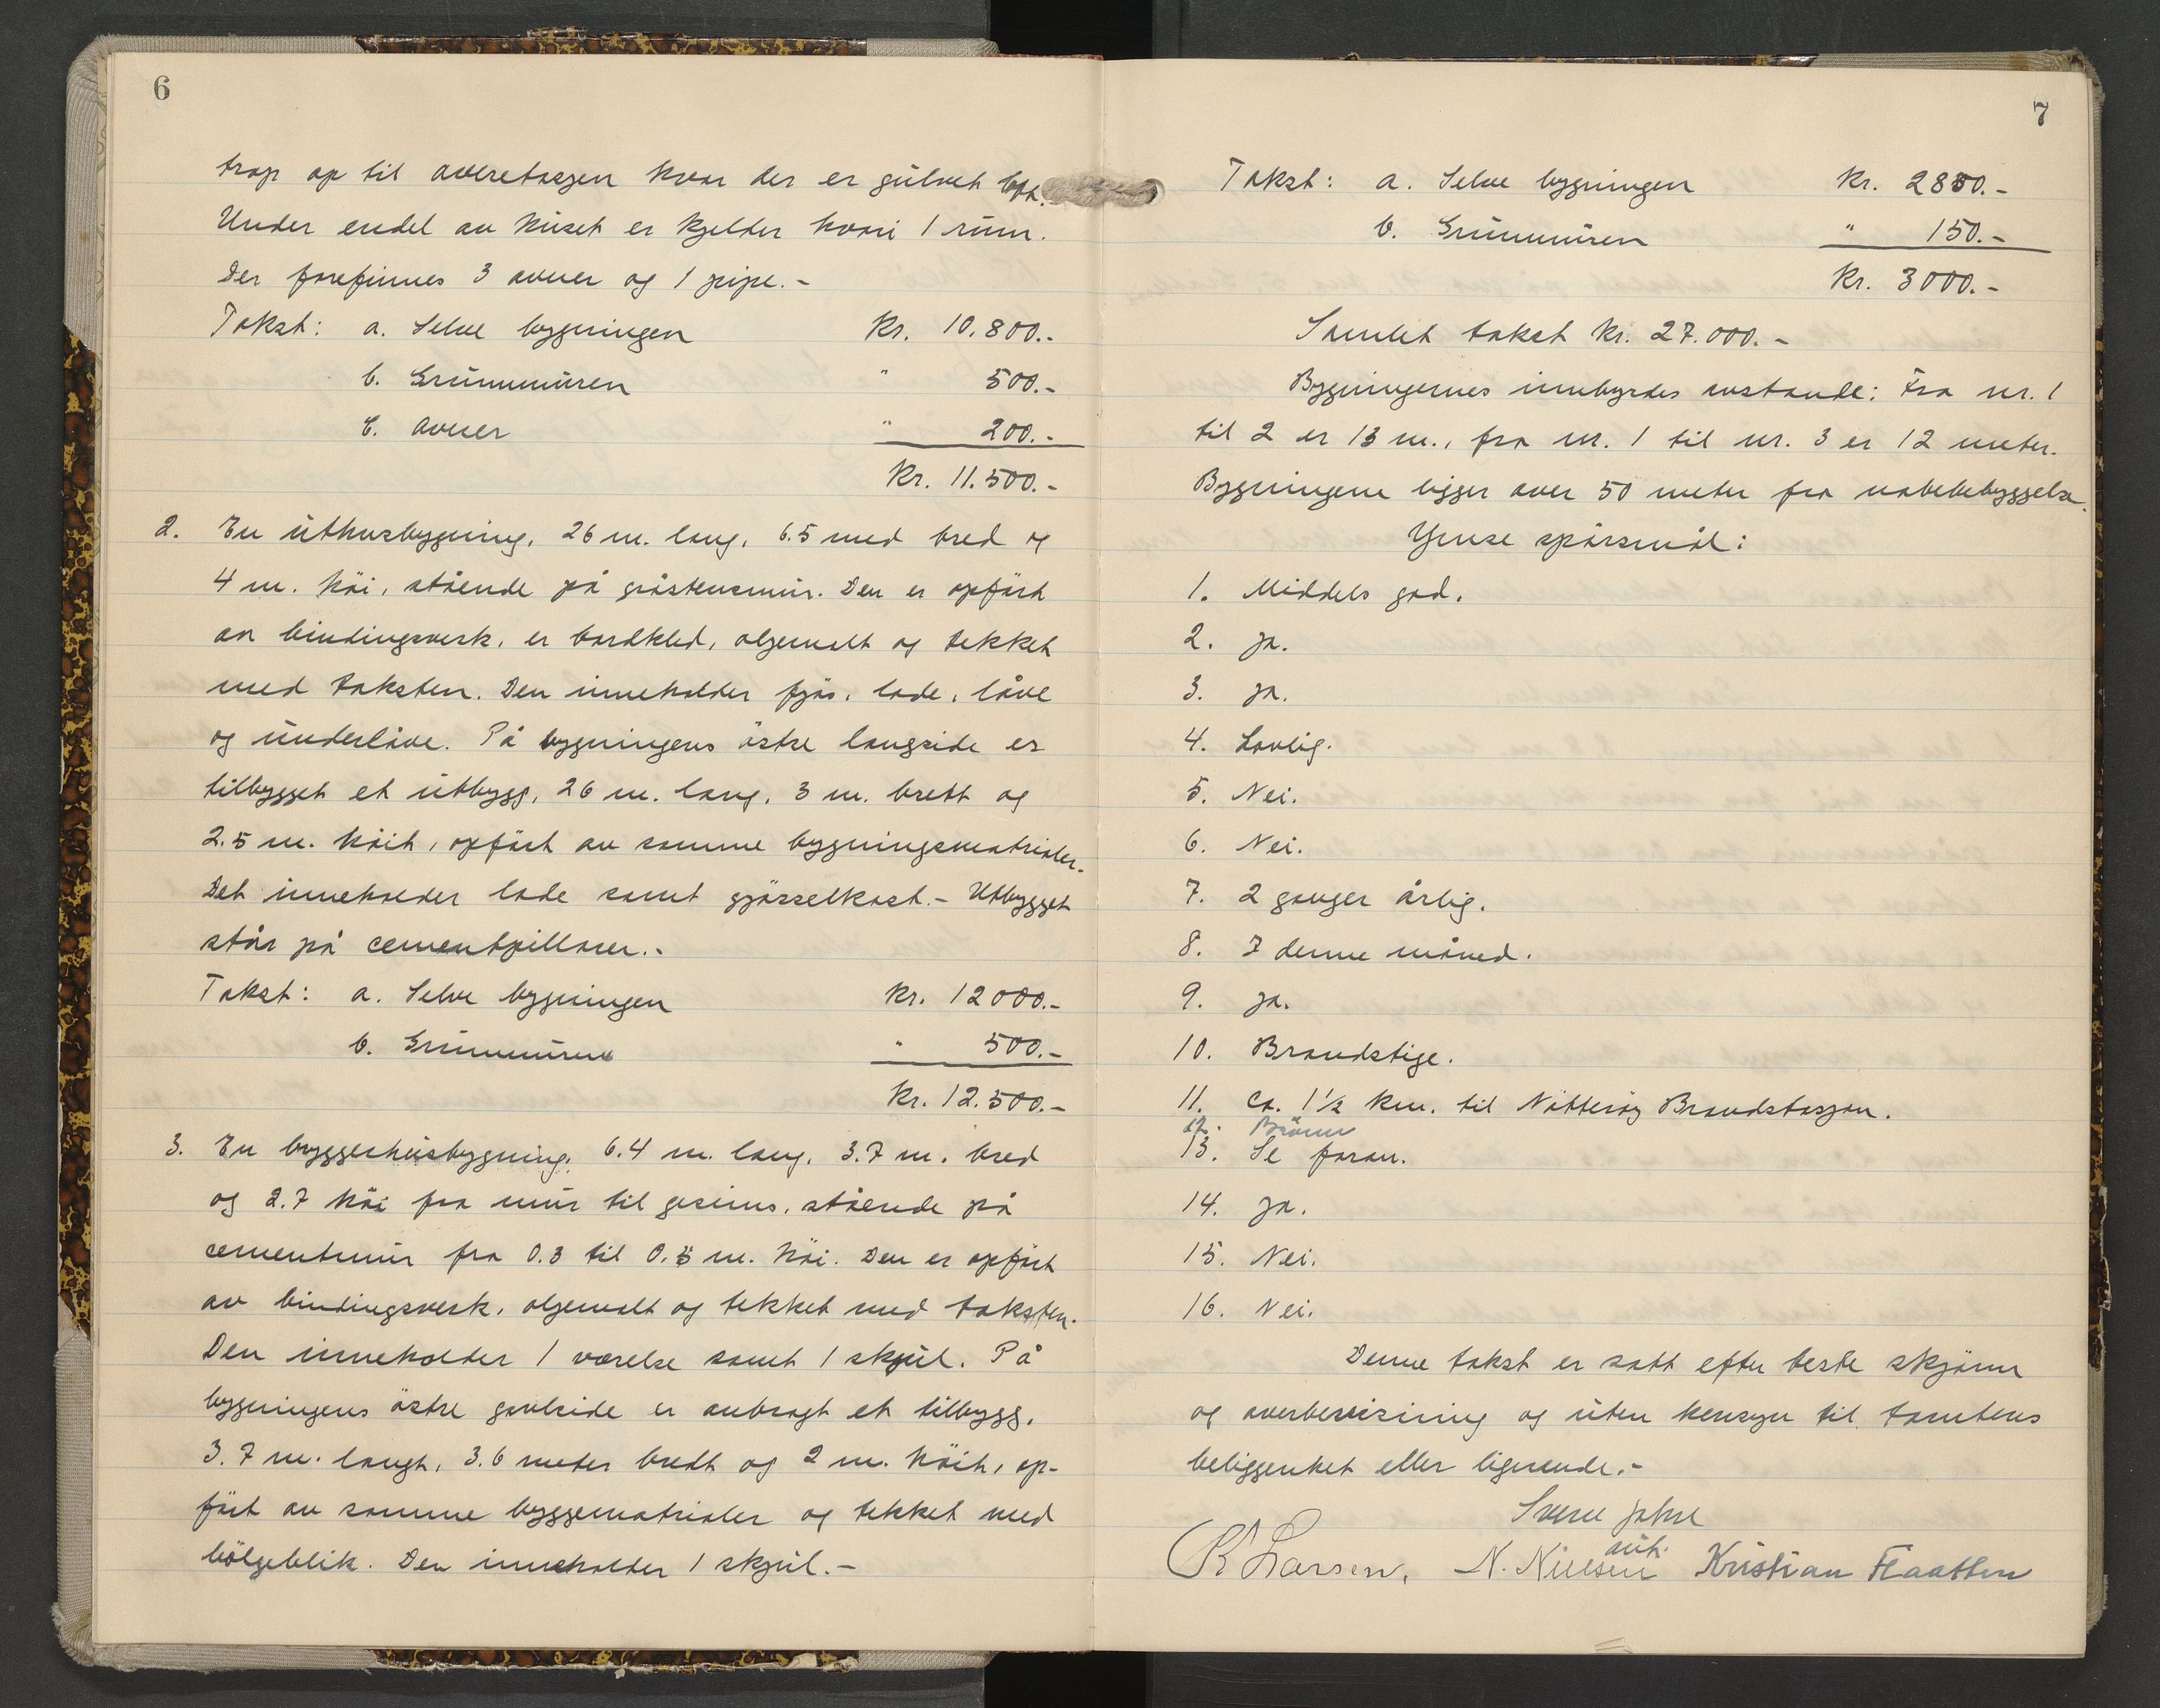 6
trap op til overetasjen hvor der er gulvet loft.
Under endel av huset er kjelder hvori 1 rum.
Der forefinnes 3 ovner og 1 pipe.-
Takst: a. Selve bygningen Kr. 10.800.-
b. Grunnmuren " 500.-
c. Ovner " 200.-
Kr. 11.500.-
2. En uthusbygning, 26 m. lang, 6.5 med bred og
4 m. höi, stående på gråstensmur. Den er opfört
av bindingsverk, er bordkled, oljemalt og tekket
med taksten. Den inneholder fjös, lade, låve
og underlåve. På bygningens östre langside er
tilbygget et utbygg, 26 m. lang, 3 m. brett og
2.5 m. höit, opfört av samme bygningsmatrialer.
Det inneholder lade samt gjösselkast.- Utbygget
står på cementpillarer.-
Takst: a. Selve bygningen Kr. 12000.-
b. Grunnmuren " 500.-
Kr. 12.500.-
3. En byggerhusbygning, 6.4 m. lang, 3.7 m. bred
og 2.7 höi fra mur til gesims, stående på
cementmur fra 0.3 til 0.5 m. höi. Den er opfört
av bindingsverk, oljemalt og tekket med taksten.
Den inneholder 1 værelse samt 1 skjul. På
bygningens östre gavlside er anbragt et tilbygg,
3.7 m. langt, 3.6 meter bredt og 2 m. höit, op-
fört av samme byggematrialer og tekket med
bölgeblik. Den inneholder 1 skjul.-
7
Takst: a. Selve bygningen Kr. 2850.-
b. Grunnmuren " 150.-
Kr. 3000.-
Samlet takst kr. 27.000.-
Bygningernes innbyrdes avstande: Fra nr. 1
til 2 er 13 m., fra nr. 1 til nr. 3 er 12 meter.
Bygningene ligger over 50 meter fra nabobebyggelse.
Ymse spörsmål:
1. Middels god.
2. ja.
3. ja.
4. Lovlig.
5. Nei.
6. Nei.
7. 2 ganger årlig.
8. I denne måned.
9. ja.
10. Brandstige.
11. ca. 1½ km. til Nötteröy Brandstasjon.
12. Brönn
13. Se foran.
14. ja.
15. Nei.
16. Nei.
Denne takst er satt efter beste skjönn
og overbevisining og uten hensyn til tomtens
beliggenhet eller lignende.-
Sverre Jahre
aut.
R Larsen, N. Nielsen Kristian Flaatten